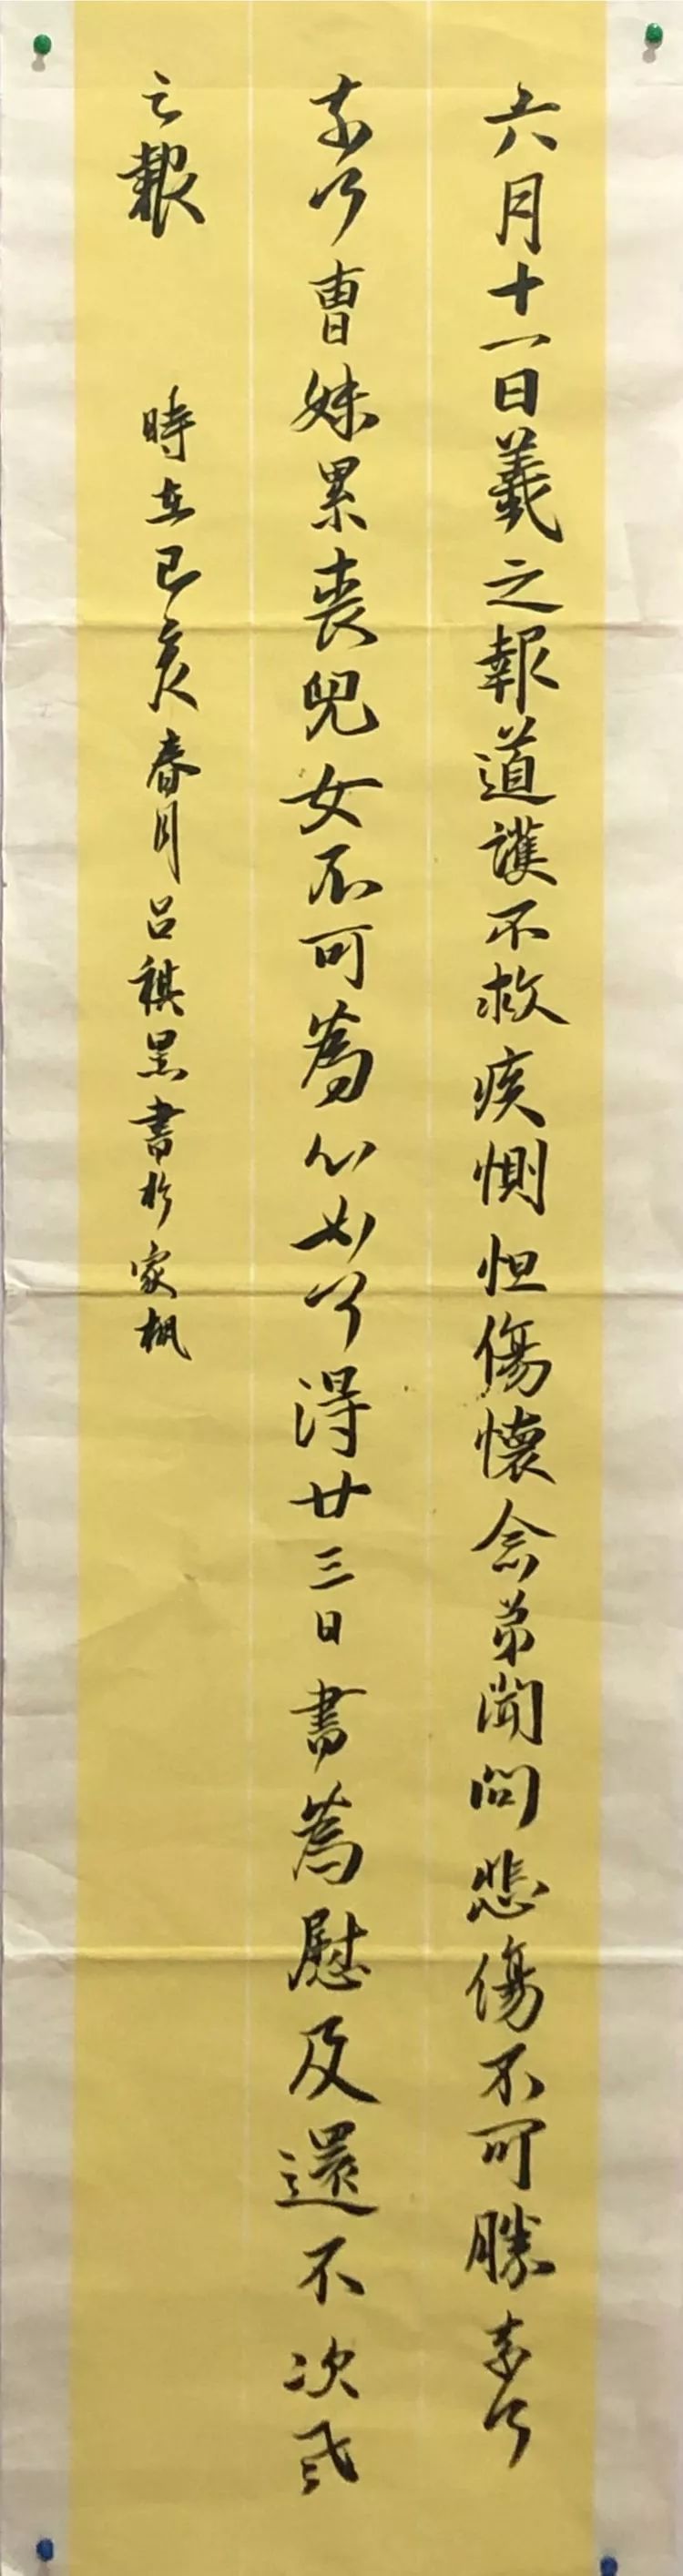 六月十一日羲之報道護不救疾惻怛傷懷念弟聞問悲傷不可勝奈何
奈何曹妹累喪兒女不可為心如何得廿三日書為慰及還不次羲
之報
時在己亥春月呂祺書於家楓